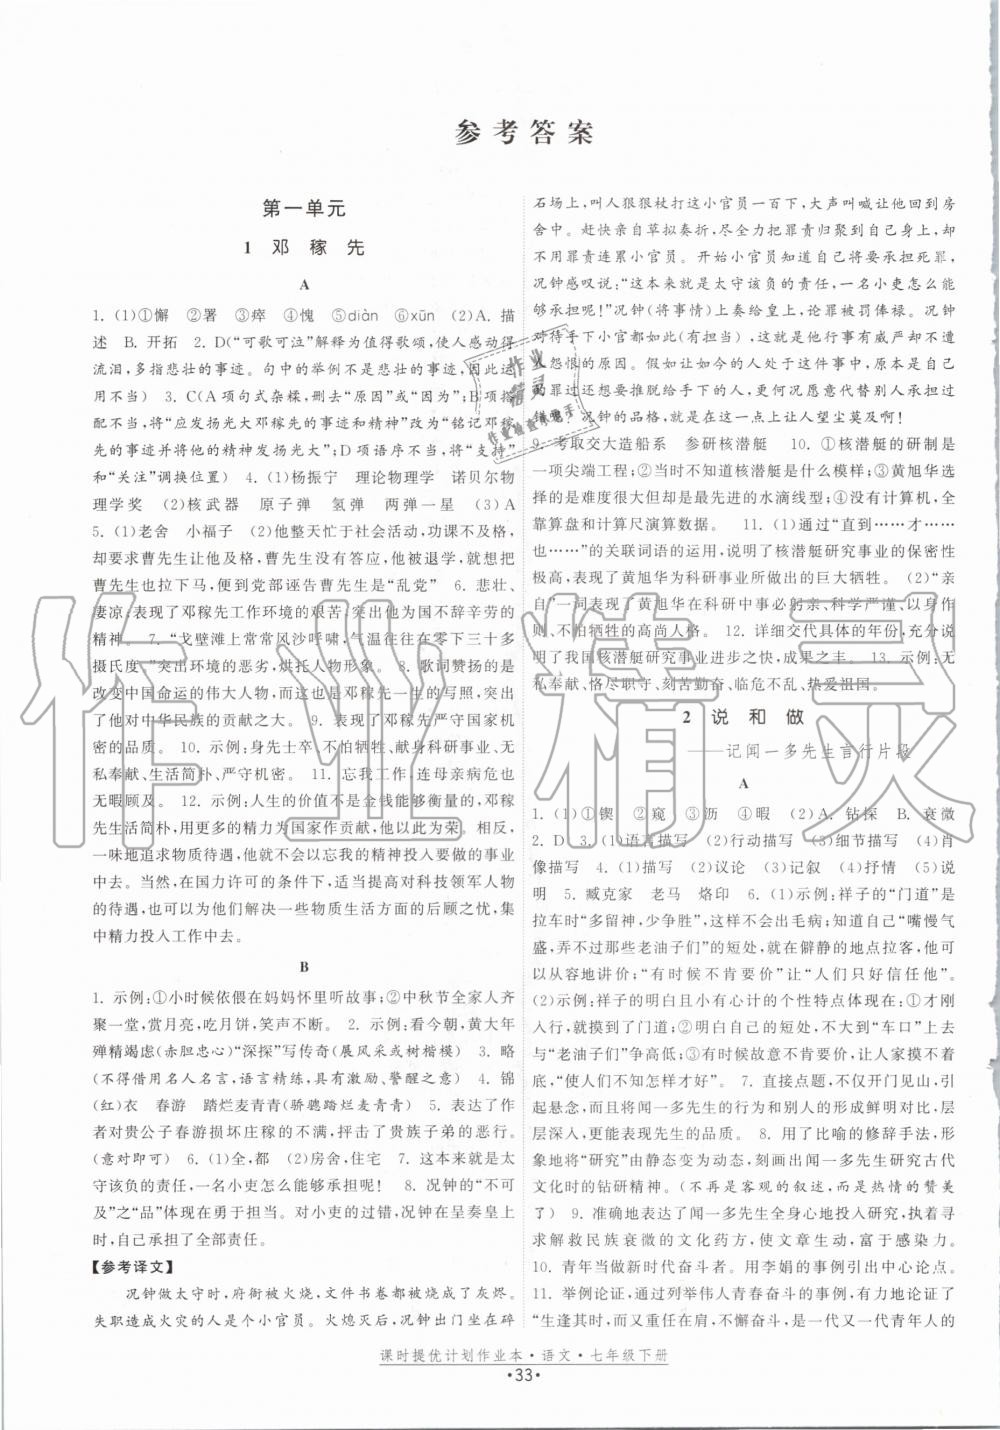 参考答案
第一单元
1 邓 稼 先
A
1. (1)①懈 ②署 ③瘁 ④愧 ⑤diàn ⑥xūn (2)A. 描
述 B. 开拓 2. D(“可歌可泣”解释为值得歌颂,使人感动得
流泪,多指悲壮的事迹。句中的举例不是悲壮的事迹,此处运
用不当) 3. C(A项句式杂糅,删去“原因”或“因为”;B项搭
配不当,将“应发扬光大邓稼先的事迹和精神”改为“应将邓稼
先的事迹传扬并将他的精神发扬光大”;D项语序不当,将“支持”
和“关注”调换位置) 4. (1)杨振宁 理论物理学 诺贝尔物
理学奖 (2)核武器 原子弹 氢弹 两弹一星 (3)A
5. (1)老舍 小福子 (2)他整天忙于社会活动,功课不及格,
却要求曹先生让他及格,曹先生没有答应,他被退学,就想把
曹先生也拉下马,便到党部诬告曹先生是“乱党” 6. 悲壮、
凄凉;表现了邓稼先工作环境的艰苦,突出他为国不辞辛劳的
精神。 7. “戈壁滩上常常风沙呼啸,气温往往在零下三十多
摄氏度”突出环境的恶劣,烘托人物形象。 8. 歌词赞扬的是
改变中国命运的伟大人物,而这正是邓稼先一生的写照,突出
了他对中华民族的贡献之大。 9. 表现了邓稼先严守国家机
密的品质。 10. 示例:身先士卒、不怕牺牲、献身科研事业、无
私奉献、生活简朴、严守机密。 11. 忘我工作,连母亲病危也
无暇顾及。 12. 示例:人生的价值不是金钱能够衡量的,邓稼
先生活简朴,用更多的精力为国家作贡献,他以此为荣。相反,
一味地追求物质待遇,他就不会有忘我的精神投入要做的事业
中去。当然,在国力许可的条件下,适当提高对科技领军人物
的待遇,也可以为他们解决一些物质生活方面的后顾之忧,集
中精力投入工作中去。
B
1. 示例:①小时候依偎在妈妈怀里听故事;②中秋节全家人齐
聚一堂,赏月亮,吃月饼,笑声不断。 2. 示例:看今朝,黄大年
殚精竭虑(赤胆忠心)“深探”写传奇(展风采或树楷模) 3. 略
(不得借用名人名言,语言精练,具有激励、警醒之意) 4. 锦
(红)衣 春游 踏烂麦青青(骄骢踏烂麦青青) 5. 表达了作
者对贵公子春游损坏庄稼的不满,抨击了贵族子弟的恶行。
(意对即可) 6. (1)全,都 (2)房舍,住宅 7. 这本来就是太
守该负的责任,一名小吏怎么能够承担起呢! 8. 况钟的“不可
及”之“品”体现在勇于担当。对小吏的过错,况钟在呈奏皇上
时,自己承担了全部责任。
【参考译文】
况钟做太守时,府衙被火烧,文件书卷都被烧成了灰烬。
失职造成火灾的人是个小官员。火熄灭后,况钟出门坐在碎
石场上,叫人狠狠杖打这小官员一百下,大声叫喊让他回到房
舍中。赶快亲自草拟奏折,尽全力把罪责归聚到自己身上,却
不用罪责连累小官员。开始小官员自己将要承担死罪,
况钟感叹说:“这本来就是太守该负的责任,一名小吏怎么能
够承担起来呢!”况钟(将事情)上奏给皇上,论罪应被罚俸禄。况钟
对待手下小官都能(有担当),这也是他行事有威严却不遭
人怨恨的原因。假使如今的人处于这件事中,原本是自己
犯罪过还想要推脱给手下的人,更何况愿意代替别人承担罪
过呢!况钟的品格,就在这一点上让人望尘莫及啊!
9. 考取交大造船系 参研核潜艇 10. ①核潜艇的研制是
一项尖端工程;②当时不知道核潜艇是什么模样;③黄旭华选
择的是难度很大但却是最先进的水滴线型;④没有计算机,全
靠算盘和计算尺演算数据。 11. (1)通过“直到……才……
也……”的关联词语的运用,说明了核潜艇研究事业的保密性
极高,表现了黄旭华为科研事业所做出的巨大牺牲。 (2)“亲
自”一词表现了黄旭华在科研中事必躬亲、科学严谨、以身作
则、不怕牺牲的高尚人格。 12. 详细交代具体的年份,充分说
明了我国核潜艇研究事业进步之快,成果之丰。 13. 示例:无
私奉献、恪尽职守、刻苦勤奋、临危不乱、热爱祖国。
2 说 和 做
——记闻一多先生言行片段
A
1. (1)①锲 ②窥 ③沥 ④暇 (2)A. 钻探 B. 衰微
2. D 3. (1)语言描写 (2)行动描写 (3)细节描写 (4)肖
像描写 4. (1)描写 (2)议论 (3)记叙 (4)抒情 (5)说
明 5. 臧克家 老马 烙印 6. (1)示例:祥子的“门道”是
拉车时“多留神,少争胜”,这样不会出毛病;知道自己“嘴慢气
盛,弄不过那些老油子们”的短处,就在僻静的地点拉客,他可
以从容地讲价;“有时候不肯要价”让“人们只好信任他”。
(2)示例:祥子的明白且小有心计的个性特点体现在:①才刚
入行,就摸到了门道;②明白自己的短处,不大到“车口”上去
与“老油子们”争高低;③有时候不讲价,让人家摸不着他的
底,“使人们不知怎样才好”。 7. 直接点题,不仅开门见山,引
起悬念,而且与闻一多先生的行为和别人的形成鲜明对比,层
层深入,更能表现先生的品质。 8. 用了比喻的修辞手法,形
象地将“研究”由静态变为动态,刻画出闻一多先生研究古代
文化时的钻研精神。(不再是客观的叙述,而是热情的赞美
了) 9. 准确地表达了闻一多先生全身心地投入研究,执着寻
求解救民族衰微的文化药方,使文章生动,富于感染力。
10. 青年当做新时代奋斗者。用李娟的事例引出中心论点。
11. 举例论证,通过列举伟人青春奋斗的事例,有力地论证了
“生逢其时,而又重任在肩,不懈奋斗,是一代又一代青年人的
课时提优计划作业本·语文·七年级下册
·33·
作业精灵
作业
精灵
作业检查小帮手